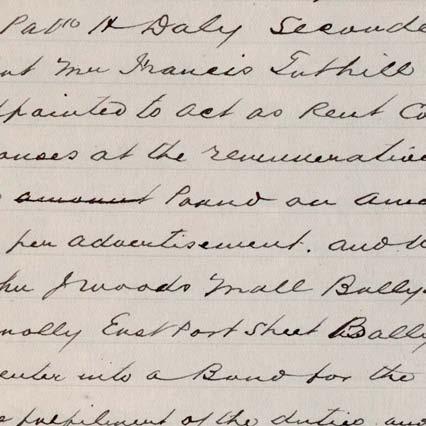 Patk H Daly Seconde
nt Mr Francis Tuthill
ppointed to act as Rent Co
ouses at the remunerative
amount Pound on amo
per advertisement. and
J Woods Mall Bally
nnolly East Port Street Bally
enter into a Bond for the
fulfilment of the duties and